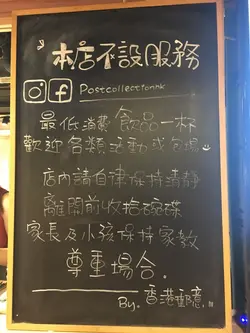 本店不設服務
Postcollectionhk
最低消費 飲品一杯
歡迎各類活動或包場
店內請自律保持清靜
離開前收拾碗碟
家長及小孩保持家教
尊重場合.
By. 香港郵意.